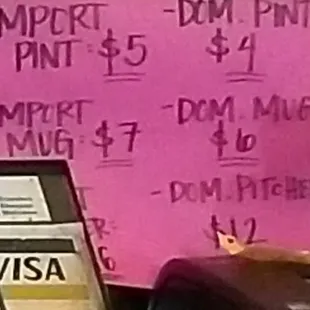 MPORT
PINT: $5
-DOM. PINT
$4
MPORT
MUG: $7
-DOM. MUG
$6
T
R:
6
-DOM. PITCHE
$12
VISA